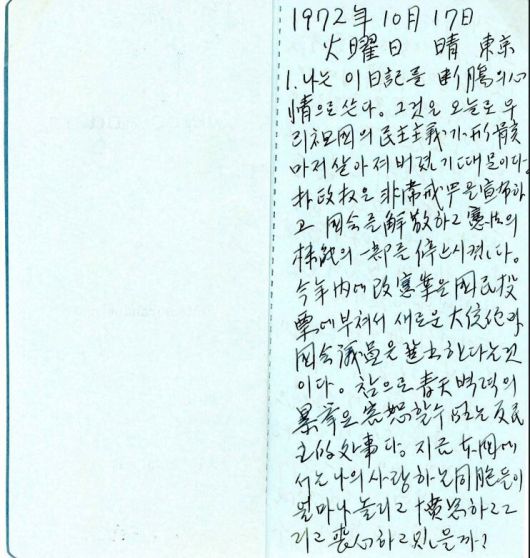 1972年 10月 17日
火曜日 晴 東京
1. 나는 이 日記를 斷腸의 心
情으로 쓴다。그것은 오늘로 우
리 祖國의 民主主義가 形骸
마저 살아져 버렸기 때문이다。
朴政权은 非常戒严을 宣布하
고 國会를 解散하고 憲法의
機能의 一部를 停止시켰다。
今年内에 改憲案을 國民投
票에 부쳐서 새로운 大統領과
國会議員을 選出한다는것
이다。참으로 靑天벽력의
暴挙요 容恕할수 없는 反民
主的 处事다。지금 本國에
서는 나의 사랑하는 同胞들이
얼마나 놀라고 憤怒하고 그
리고 喪心하고 있을까!